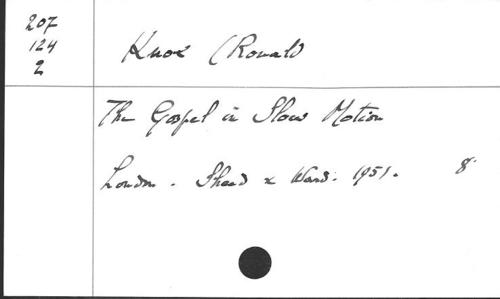 207
124
2
Knox (Ronald
The Gospel in Slow Motion
London. Sheed & Ward. 1951. 8°